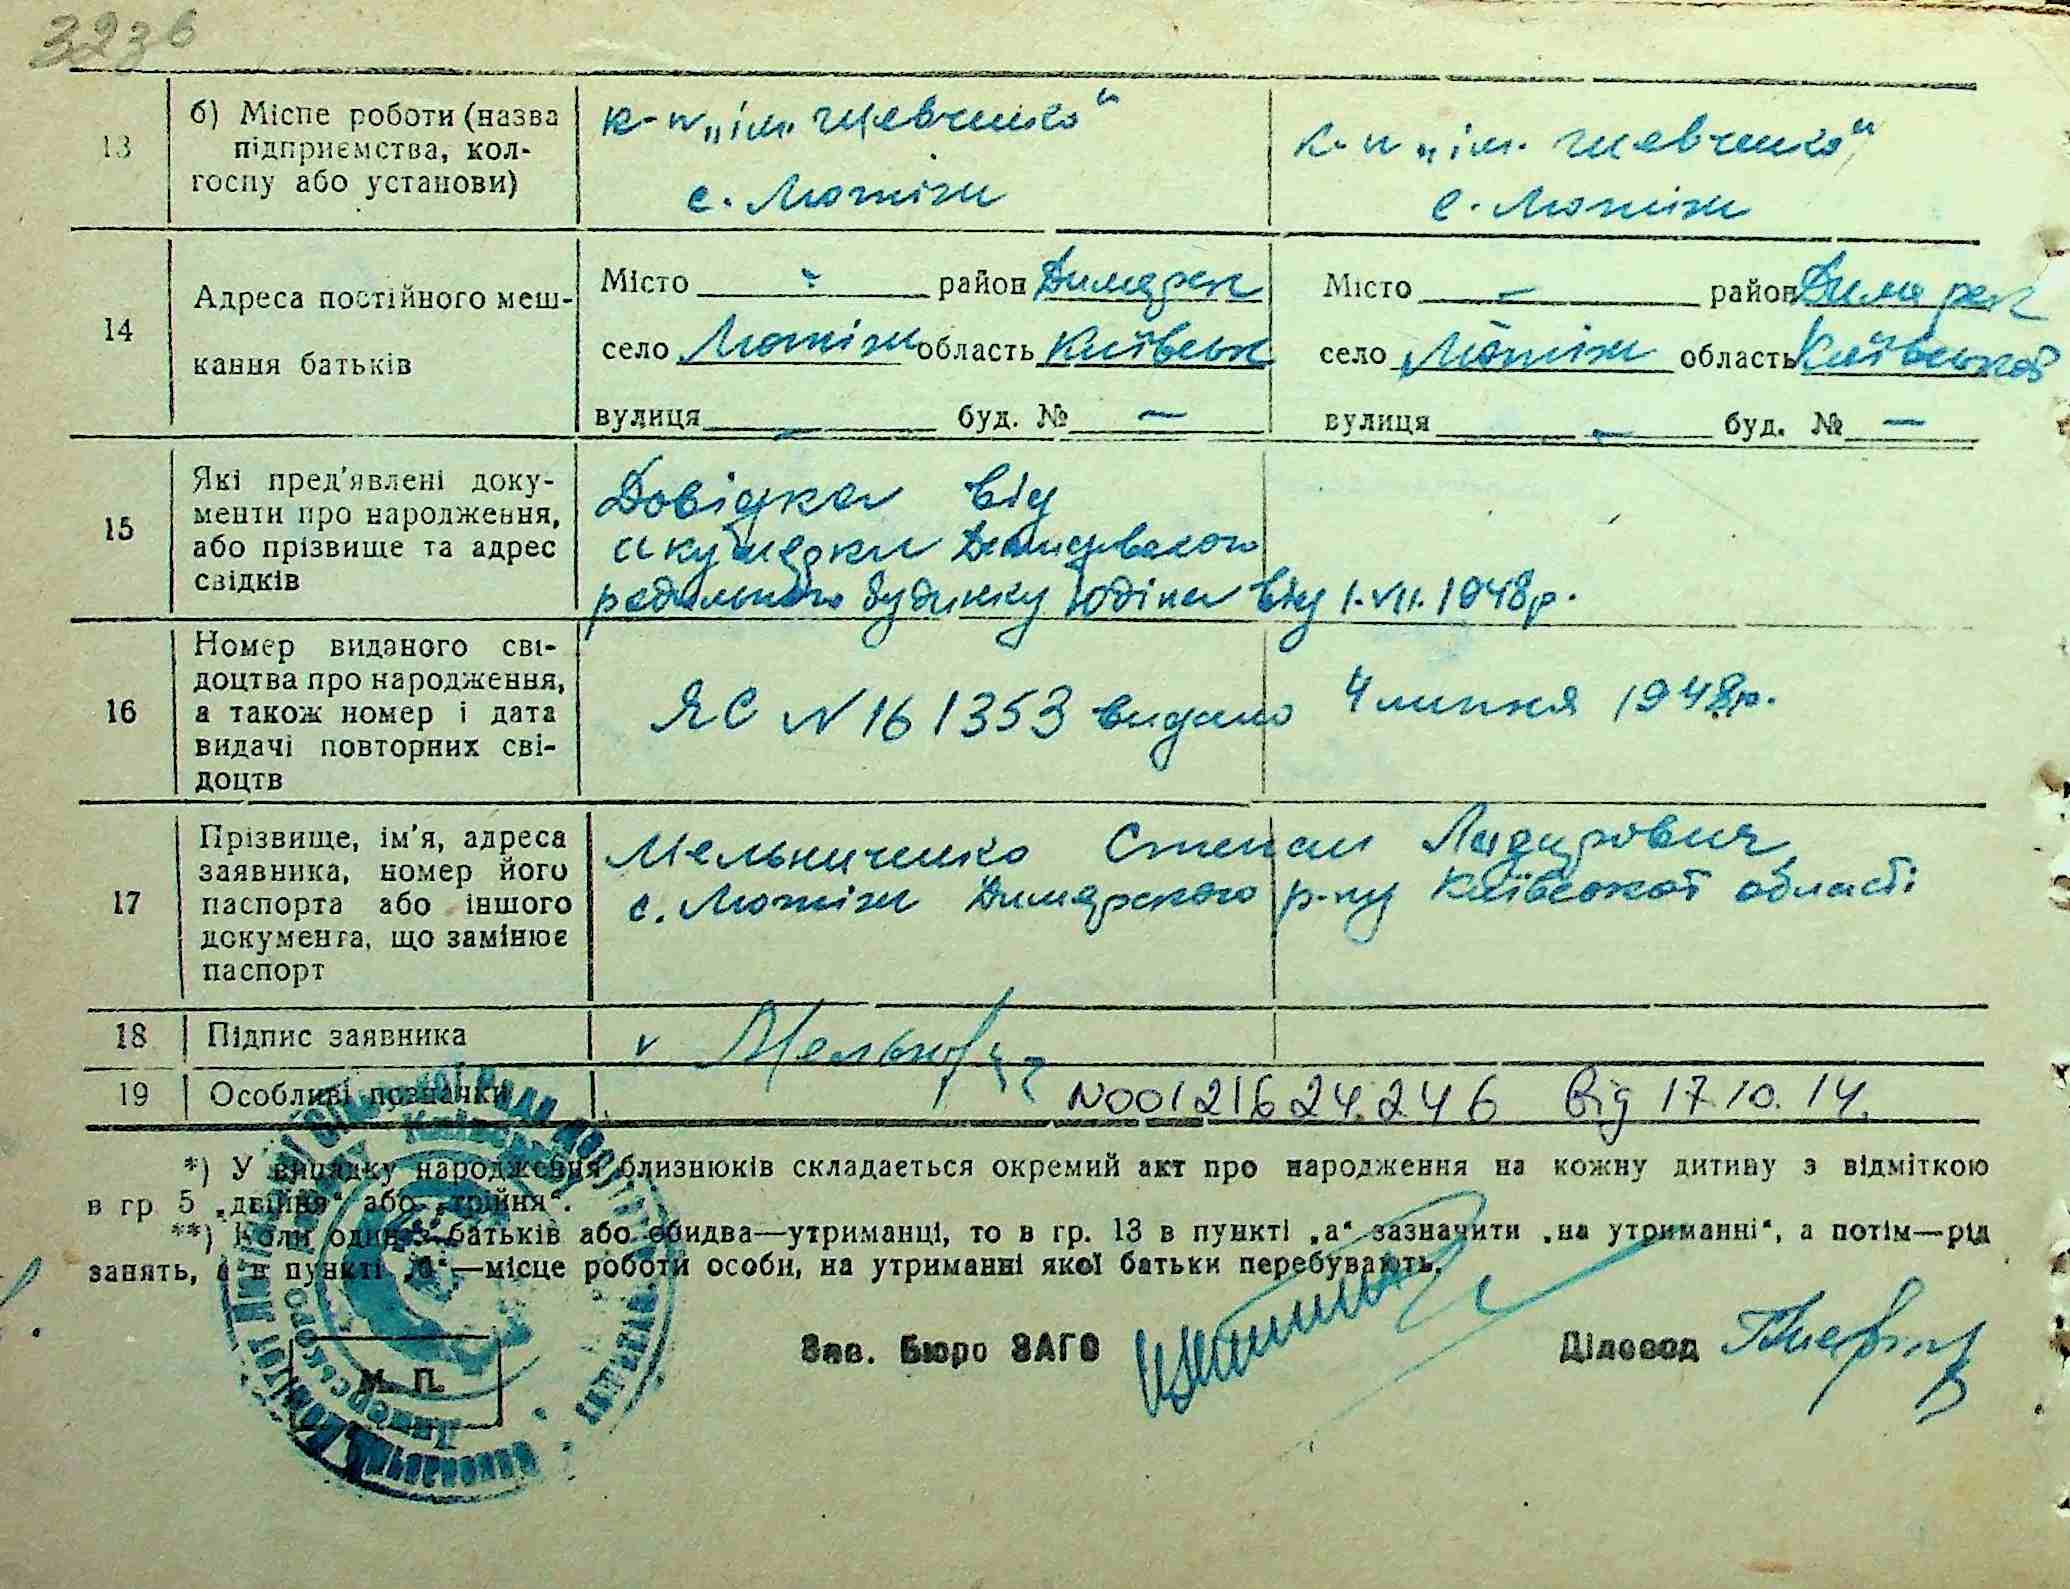 323б
13 б) Місце роботи (назва к-п „ім. Шевченко“ к-п „ім. Шевченко“
підприємства, кол-
госпу або установи) с. Лютіж с. Лютіж
14 Адреса постійного меш-
кання батьків
Місто - район Димерск Місто - район Димерск
село Лютіж область Київськ село Лютіж область Київської
вулиця - буд. № - вулиця - буд. № -
15 Які пред'явлені доку-
менти про народження,
або прізвище та адрес
свідків
Довідка від
акушерки
родильного будинку від 1.VII.1948р.
16 Номер виданого сві-
доцтва про народження,
а також номер і дата
видачі повторних сві-
доцтв
ЯС N 161353 видано 4 липня 1948р.
17 Прізвище, ім'я, адреса
заявника, номер його
паспорта або іншого
документа, що замінює
паспорт
Мельниченко Степан
с. Лютіж Димерского р-ну Київської області
18 Підпис заявника
19 Особливі позначки N00121624246 від 17.10.14.
*) У випадку народження близнюків складається окремий акт про народження на кожну дитину з відміткою
в гр 5 „двійня“ або „трійня“.
**) Коли один з батьків або обидва—утриманці, то в гр. 13 в пункті „а“ зазначити „на утриманні“, а потім—рід
занять, а в пункті „б“—місце роботи особи, на утриманні якої батьки перебувають.
Зав. Бюро ЗАГС Діловод
М. П.